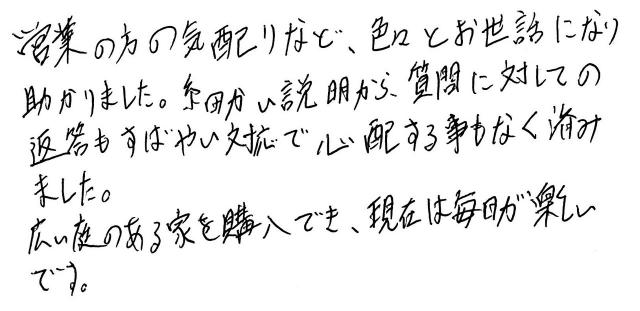 営業の方の気配りなど、色々とお世話になり
助かりました。細かい説明から、質問に対しての
返答もすばやい対応で心配する事もなく済み
ました。
広い庭のある家を購入でき、現在は毎日が楽しい
です。